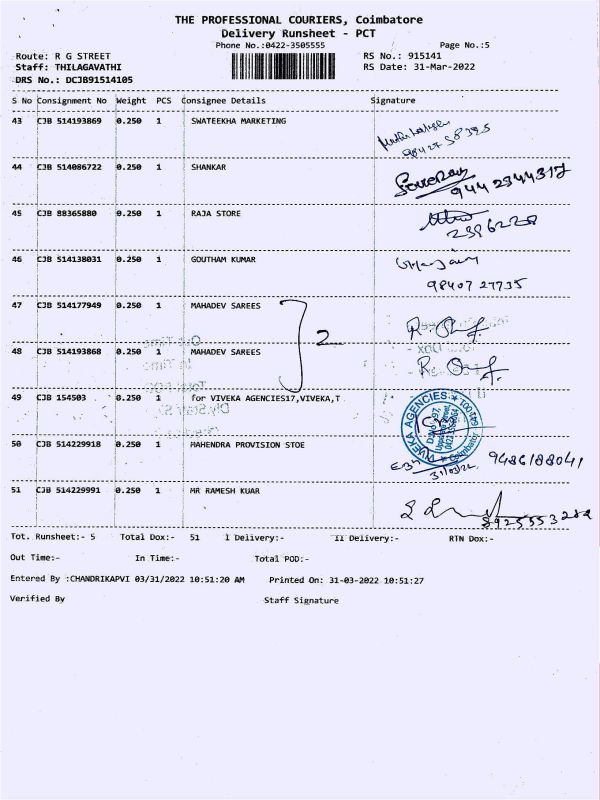 THE PROFESSIONAL COURIERS, Coimbatore
Delivery Runsheet - PCT
Phone No.:0422-3505555 Page No.:5
Route: R G STREET RS No.: 915141
Staff: THILAGAVATHI RS Date: 31-Mar-2022
DRS No.: DCJB91514105
S No Consignment No Weight PCS Consignee Details Signature
43 CJB 514193869 0.250 1 SWATEEKHA MARKETING
44 CJB 514086722 0.250 1 SHANKAR
944 2344317
45 CJB 88365880 0.250 1 RAJA STORE
46 CJB 514138031 0.250 1 GOUTHAM KUMAR
98407 27735
47 CJB 514177949 0.250 1 MAHADEV SAREES
2
48 CJB 514193868 0.250 1 MAHADEV SAREES
49 CJB 154503 0.250 1 for VIVEKA AGENCIES17,VIVEKA,T
VIVEKA AGENCIES
Coimbatore
641 001
50 CJB 514229918 0.250 1 MAHENDRA PROVISION STOE
9486188041
31/03/22
51 CJB 514229991 0.250 1 MR RAMESH KUAR
Tot. Runsheet:- 5 Total Dox:- 51 I Delivery:- II Delivery:- RTN Dox:-
Out Time:- In Time:- Total POD:-
Entered By :CHANDRIKAPVI 03/31/2022 10:51:20 AM Printed On: 31-03-2022 10:51:27
Verified By Staff Signature